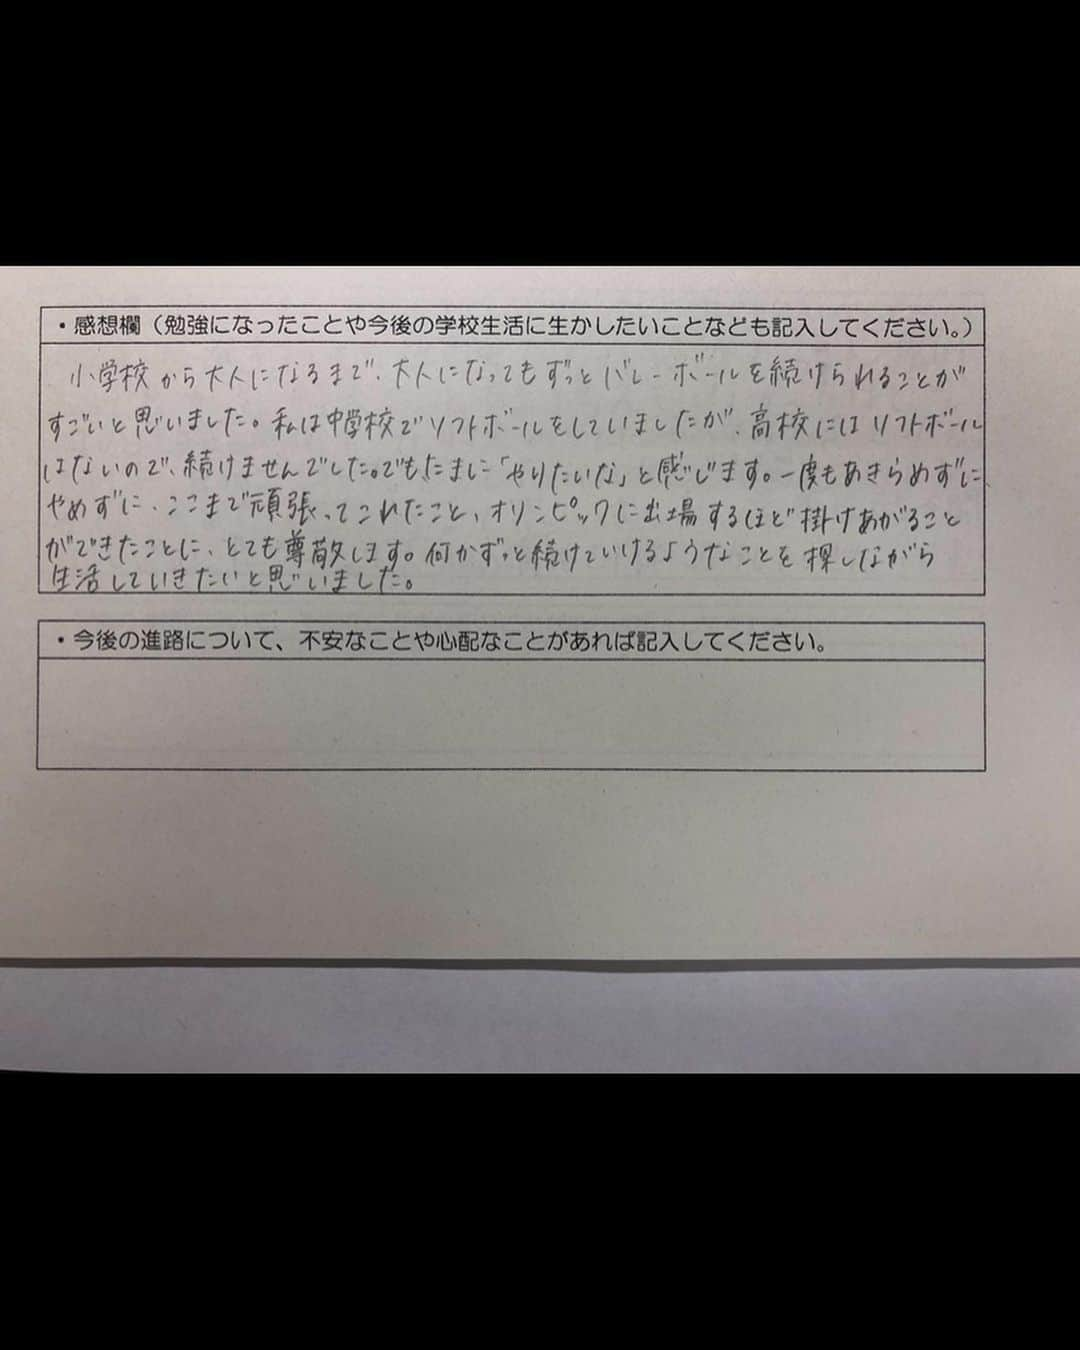 ・感想欄（勉強になったことや今後の学校生活に生かしたいことなども記入してください。）
小学校から大人になるまで、大人になってもずっとバレーボールを続けられることが
すごいと思いました。私は中学校でソフトボールをしていましたが、高校にはソフトボール
はないので、続けませんでした。でも、たまに「やりたいな」と感じます。一度もあきらめずに、
やめずに、ここまで頑張ってこれたこと、オリンピックに出場するほど掛けあがること
ができたことに、とても尊敬します。何かずっと続けていけるようなことを探しながら
生活していきたいと思いました。
・今後の進路について、不安なことや心配なことがあれば記入してください。